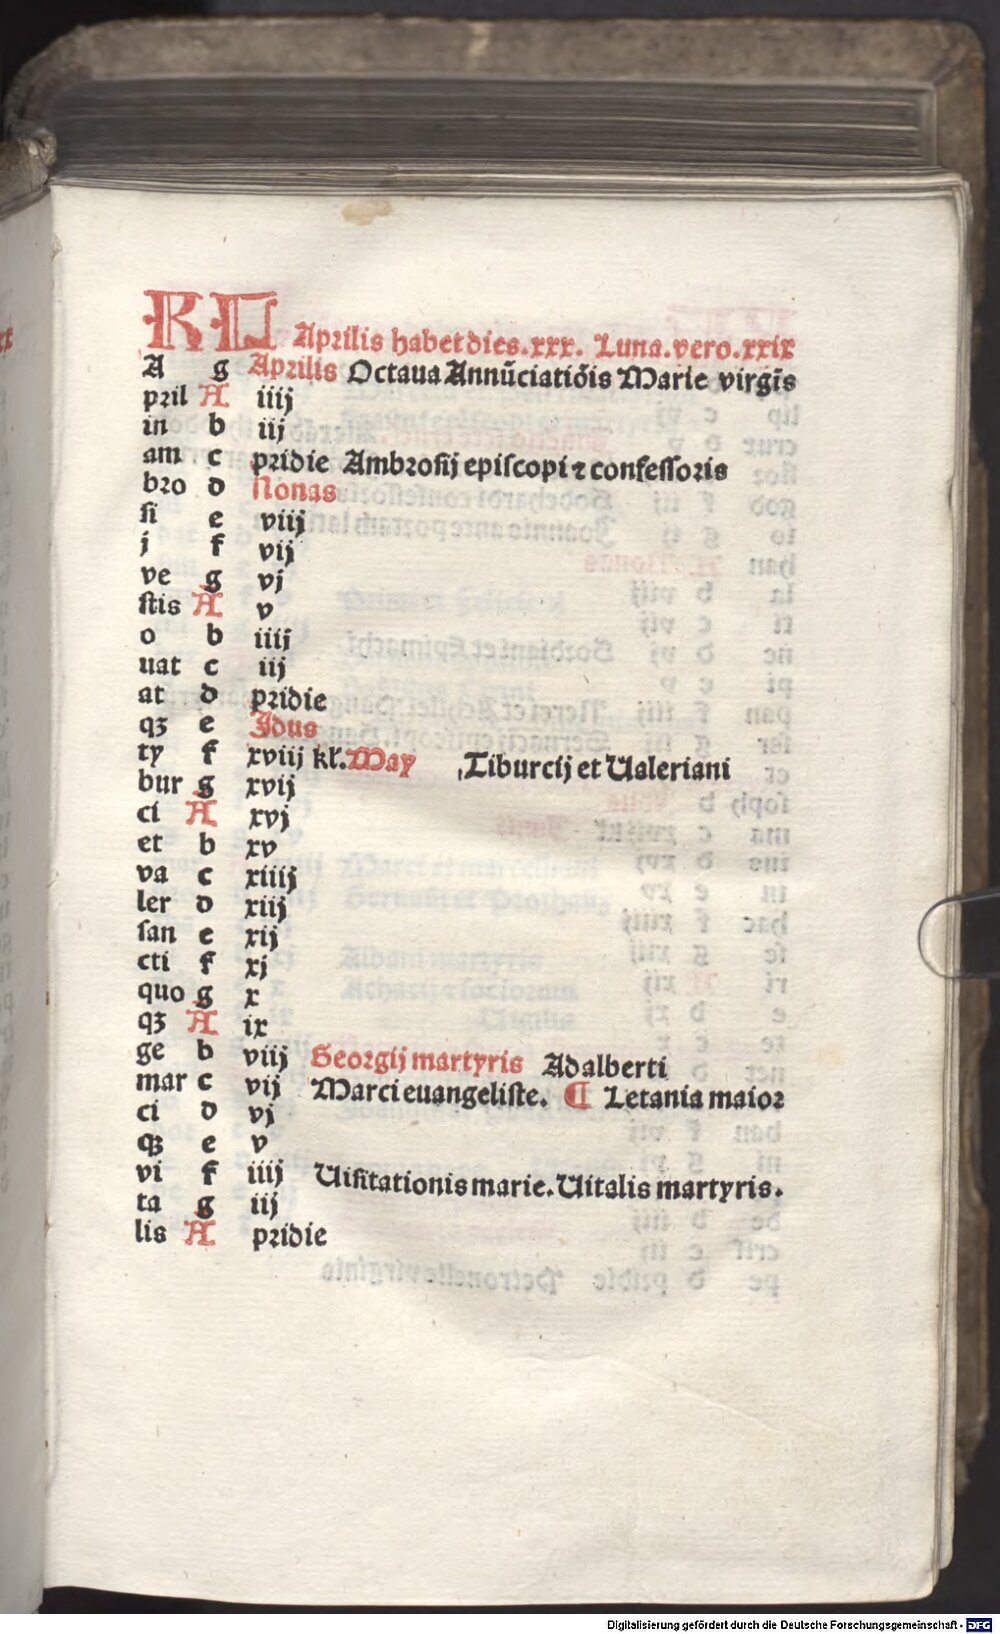 KL Aprilis habet dies.xxx. Luna.vero.xxix
A g Aprilis Octaua Annūciatiōis Marie virgīs
pril A iiij
in b iij
am c pridie Ambrosij episcopi ⁊ confessoris
bro d Nonas
si e viij
j f vij
ve g vj
stis A v
o b iiij
uat c iij
at d pridie
qꝫ e Jdus
ty f xviij kl. May Tiburcij et Ualeriani
bur g xvij
ci A xvj
et b xv
va c xiiij
ler d xiij
san e xij
cti f xj
quo g x
qꝫ A ix
ge b viij Georgij martyris Adalberti
mar c vij Marci euangeliste. ¶ Letania maior
ci d vj
qꝫ e v
vi f iiij Uisitationis marie. Uitalis martyris.
ta g iij
lis A pridie
Digitalisierung gefördert durch die Deutsche Forschungsgemeinschaft - DFG